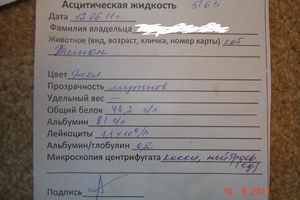 Асцитическая жидкость 5163
Дата 12.06.11г.
Фамилия владельца
Животное (вид, возраст, кличка, номер карты) кот
Тимон
Цвет
Прозрачность мутная
Удельный вес —
Общий белок 43,2 г/л
Альбумин 8,1 г/л
Лейкоциты 1,1 x 10⁹/л
Альбумин/глобулин 0,2
Микроскопия центрифугата кокки, нейтроф.
(ед)
Подпись